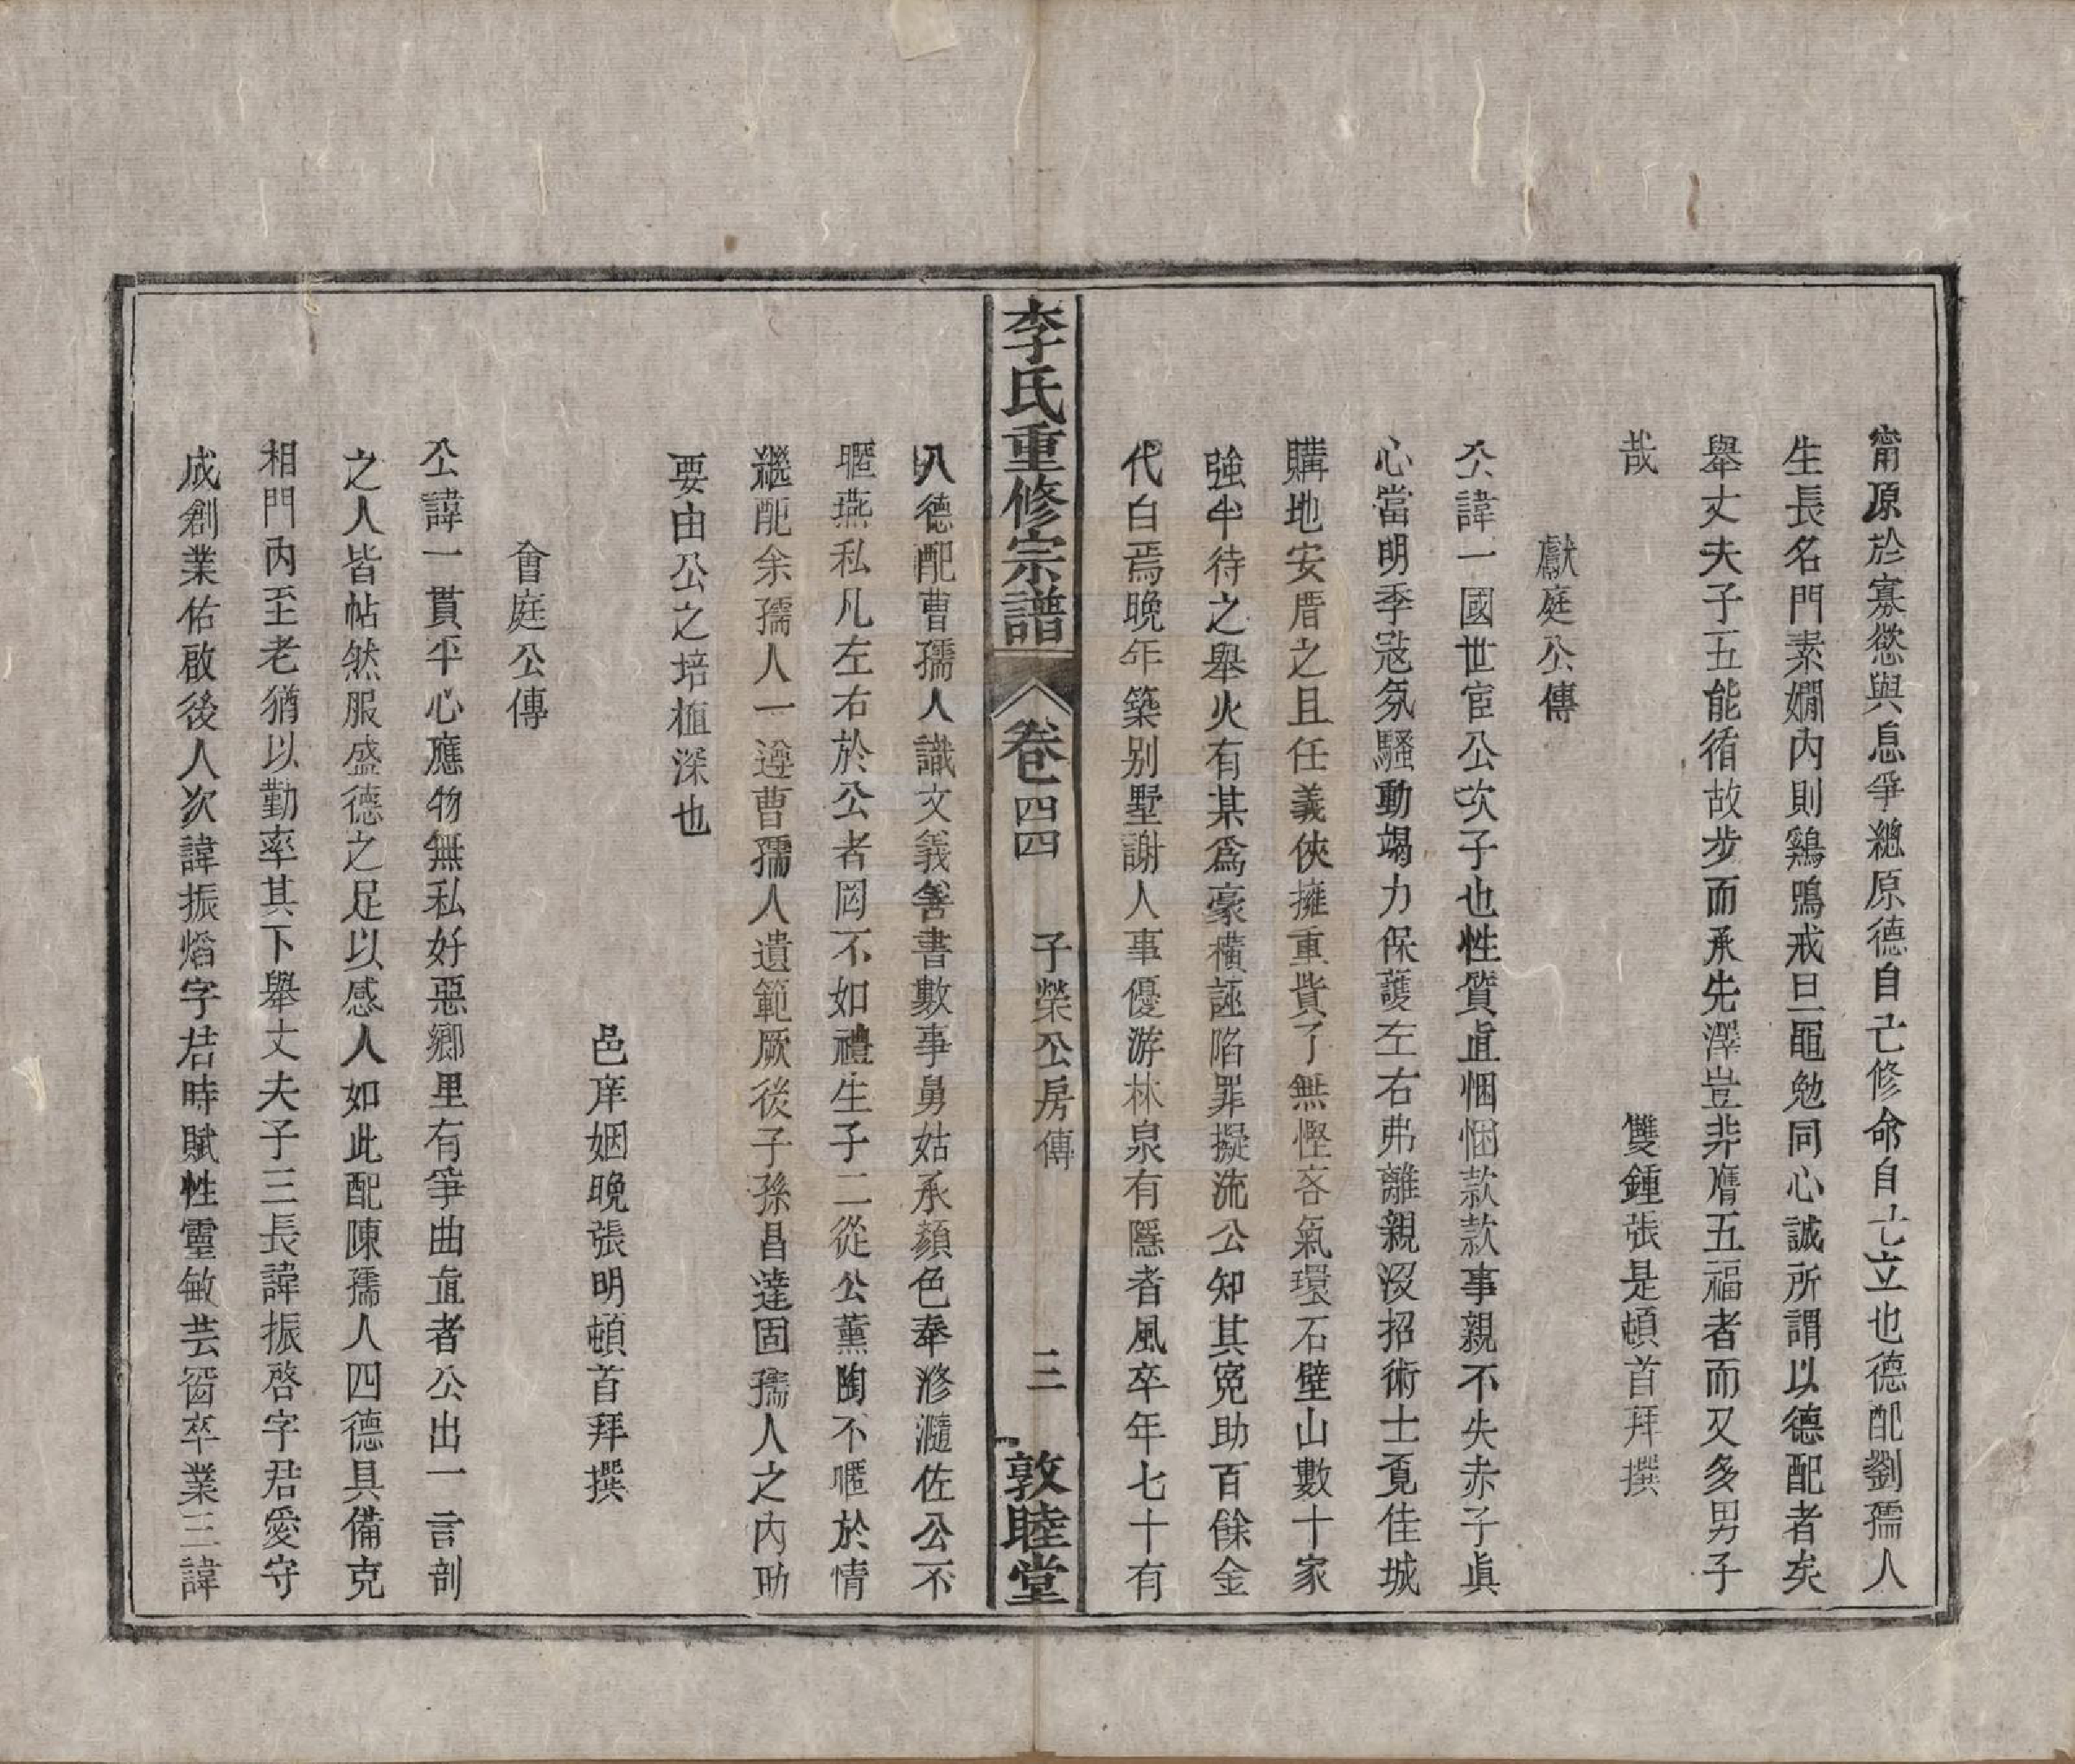 甯原於寡慾與息爭總原德自己修命自己立也德配劉孺人
生長名門素嫺內則鷄鳴戒旦黽勉同心誠所謂以德配者矣
舉丈夫子五能循故步而承先澤豈非膺五福者而又多男子
哉
雙鍾張是頓首拜撰
獻庭公傳
公諱一國世宦公次子也性質直悃悃款款事親不失赤子眞
心當明季冦氛騷動竭力保護左右弗離親沒招術士覓佳城
購地安厝之且任義俠擁重貲了無慳吝氣環石壁山數十家
強半待之舉火有某爲豪横誣陷罪擬流公知其寃助百餘金
代白焉晚年築别墅謝人事優游林泉有隱者風卒年七十有
李氏重修宗譜
卷四四
子榮公房傳
三
敦睦堂
八德配曹孺人識文義善書數事舅姑承顏色奉滫瀡佐公不
暱燕私凡左右於公者罔不如禮生子二從公薰陶不暱於情
繼配余孺人一遵曹孺人遺範厥後子孫昌達固孺人之內助
要由公之培植深也
邑庠姻晚張明頓首拜撰
會庭公傳
公諱一貫平心應物無私好惡鄉里有爭曲直者公出一言剖
之人皆帖然服盛德之足以感人如此配陳孺人四德具備克
相門內至老猶以勤率其下舉丈夫子三長諱振啓字君愛守
成創業佑啟後人次諱振熖字君時賦性靈敏芸窗卒業三諱